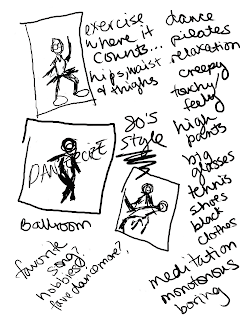 exercise
where it
counts...
hips, waist
& thighs
dance
pilates
relaxation
creepy
touchy/
feely
high
pants
big
glasses
tennis
shoes
black
clothes
80's
style
Ballroom
favorite
song?
hobbies?
fave dance move?
meditation
monotonous
boring